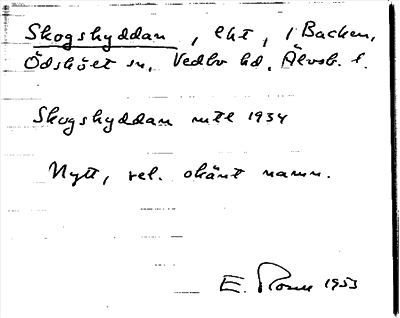 Skogshyddan, lht, i Backen,
Ödsköлt sn, Vedbo hd, Älvsb. l.
Skogshyddan mtl 1934
Nytt, rel. okänt namn.
E. Rosell 1953